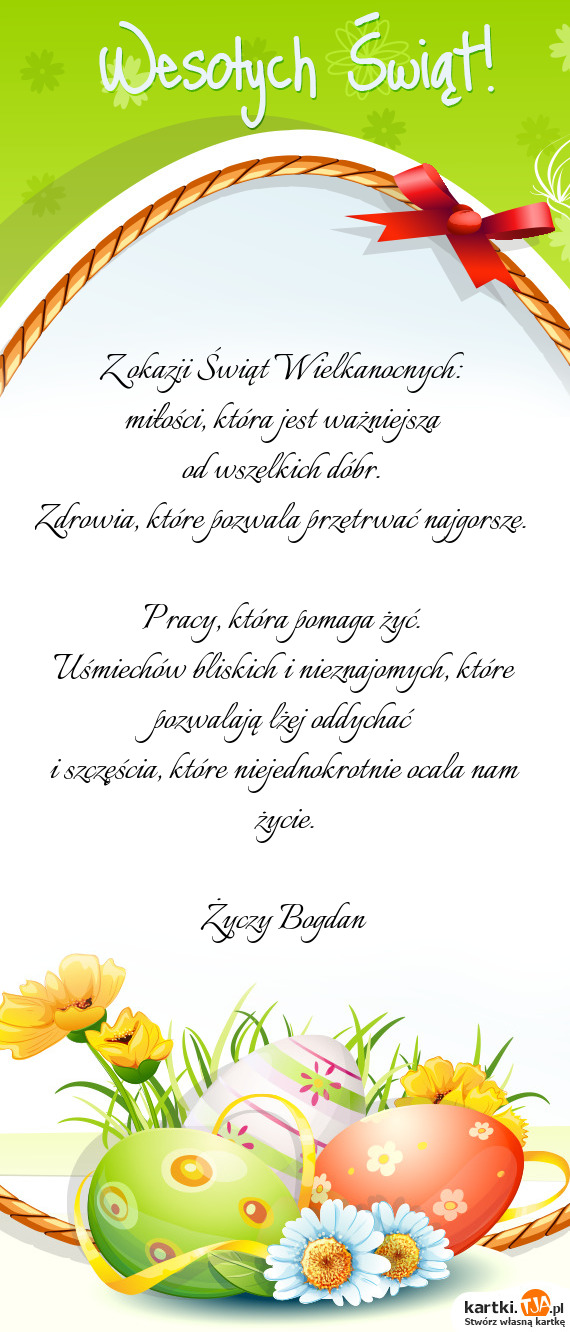 Wesołych Świąt!
Z okazji Świąt Wielkanocnych:
miłości, która jest ważniejsza
od wszelkich dóbr.
Zdrowia, które pozwala przetrwać najgorsze.
Pracy, która pomaga żyć.
Uśmiechów bliskich i nieznajomych, które
pozwalają lżej oddychać
i szczęścia, które niejednokrotnie ocala nam
życie.
Życzy Bogdan
kartki.TJA.pl
Stwórz własną kartkę